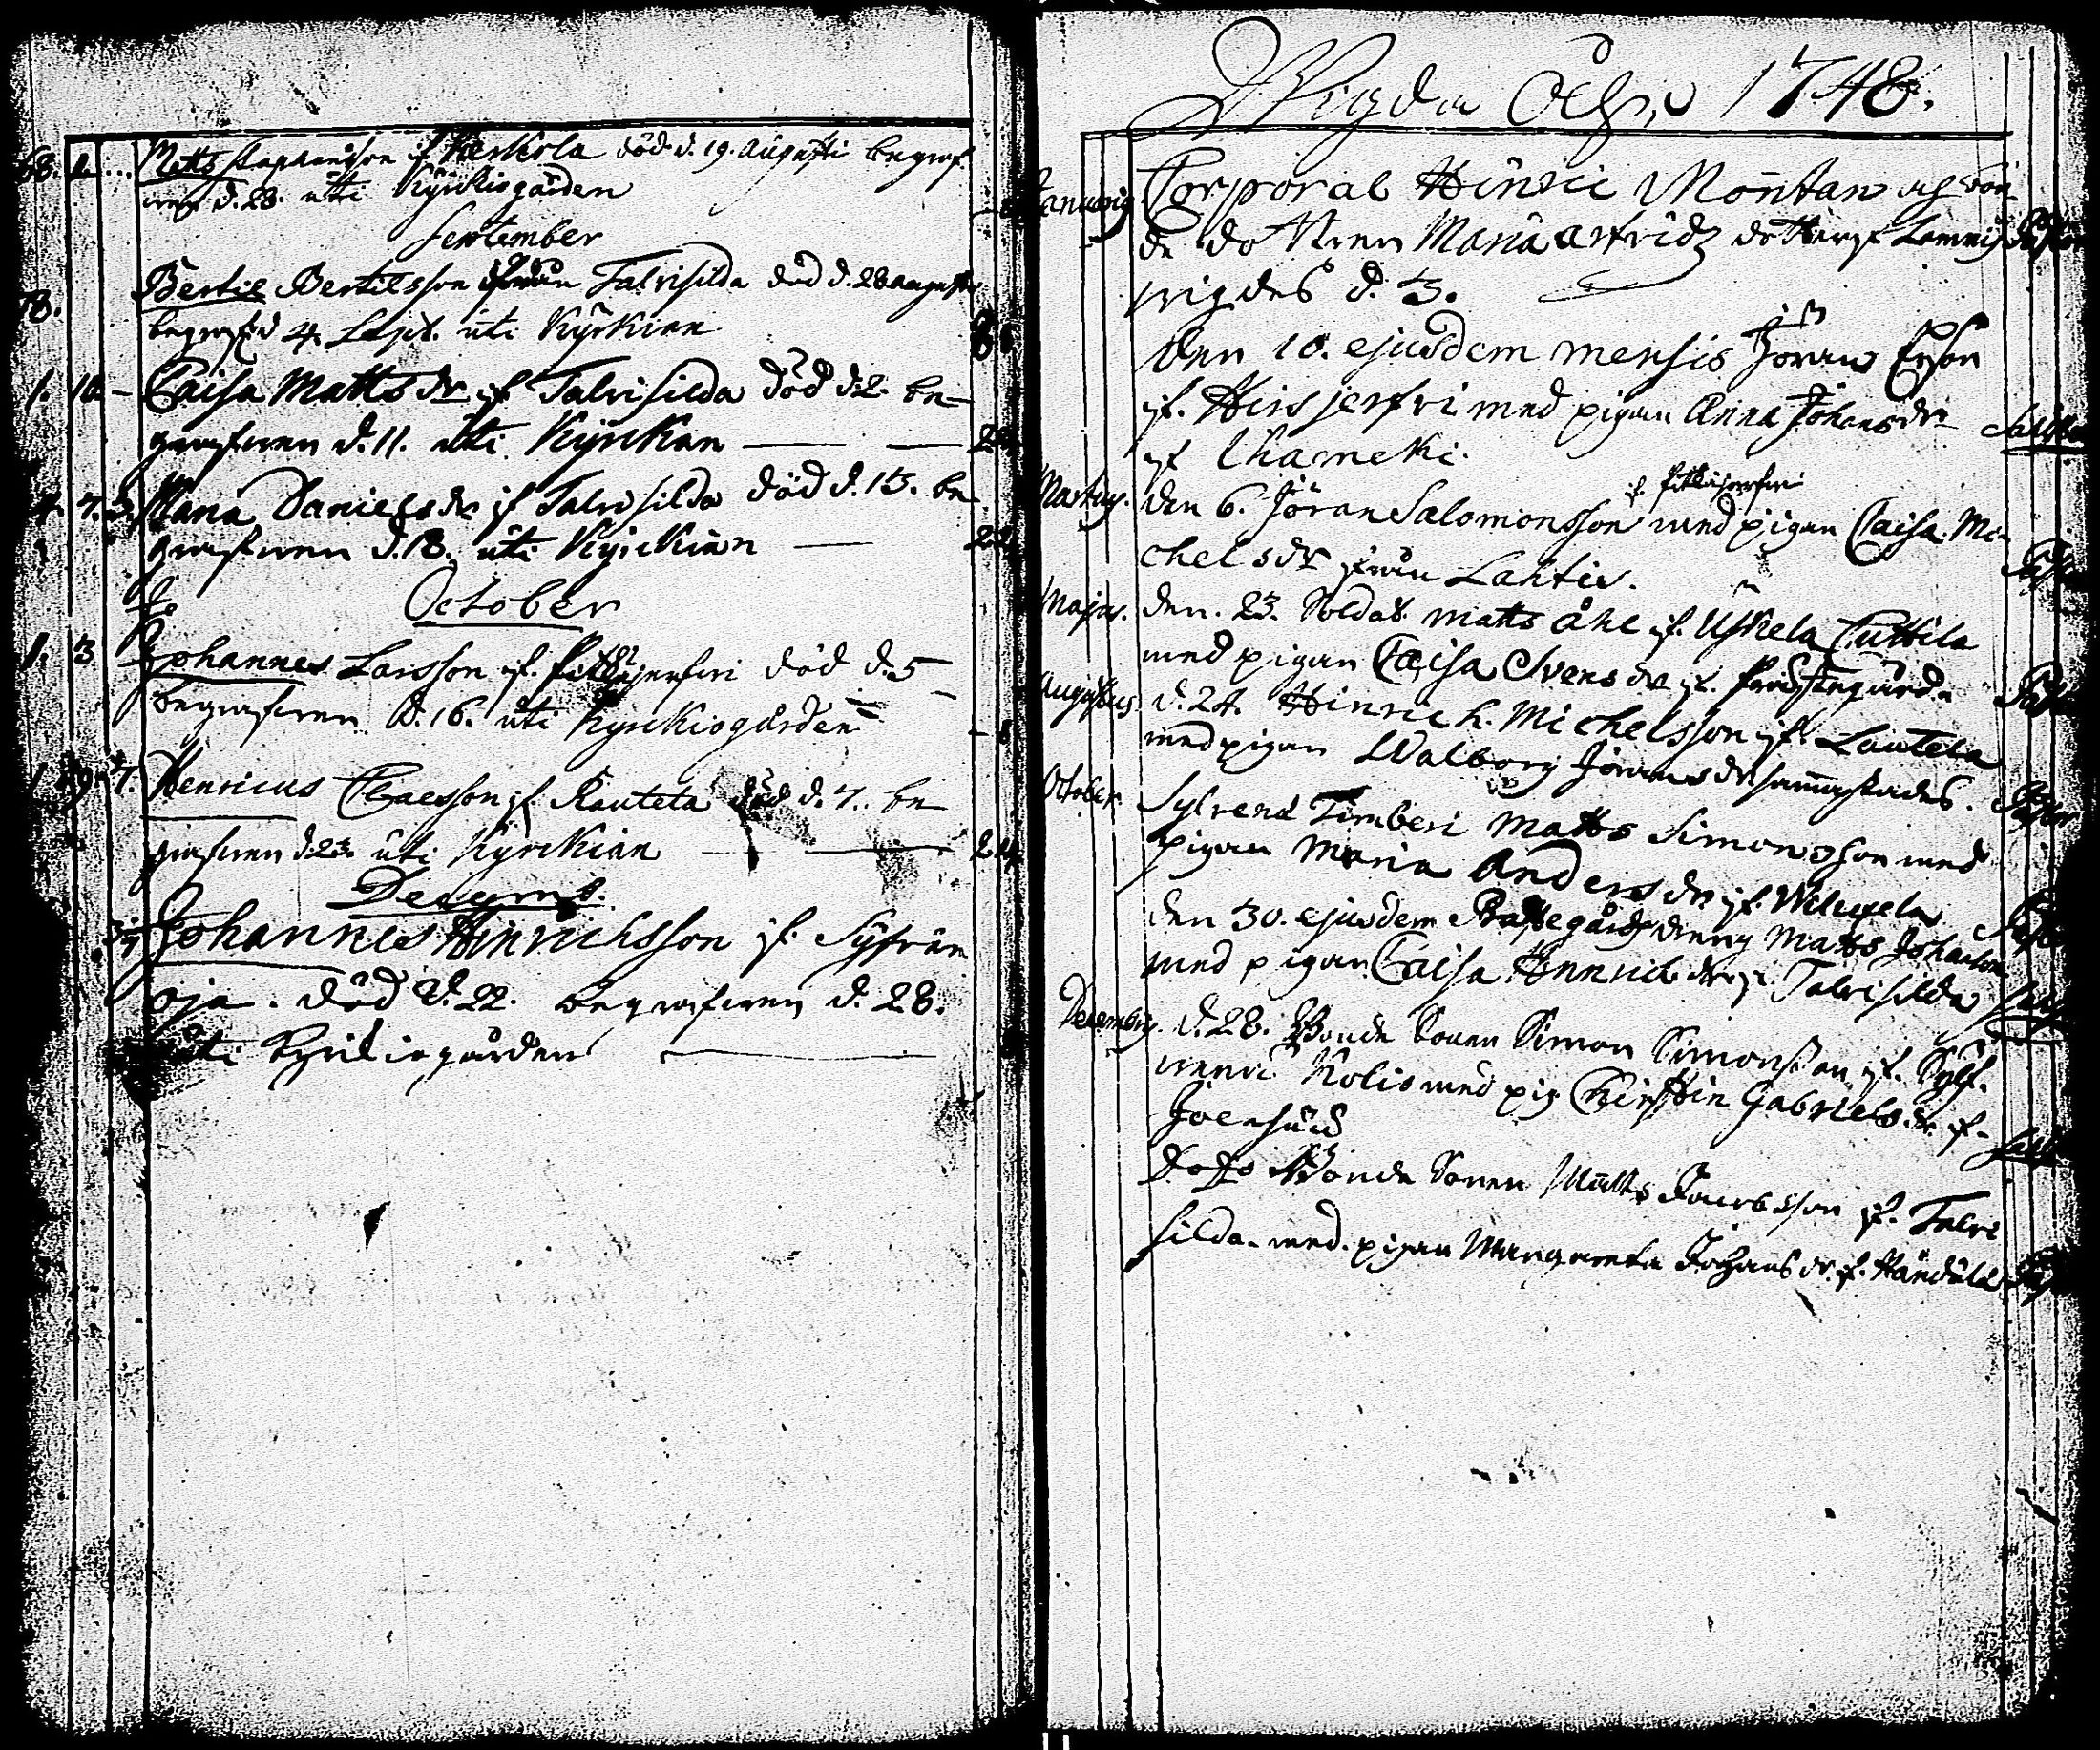 68. 1. Matts Staphansson if. Keskola död d. 19. Augusti begraf
wen d. 28. uti Kyrkiogården
September
78. Bertil Bertilsson ifrån Talvisilda död d. 28 augusti
begrafd 4. Sept. uti Kyrkian
1. 10. Caisa Matts dr if Talvisilda död d. 2. be
grafwen d. 11. uti Kyrckan
4. 7. 3. Maria Daniels dr if Talvisilda död d. 15. be
grafwen d. 18. uti Kyrckian
October
1. 3 Johannes Larsson if. död d. 5
begrafwen d. 16. uti Kyrckiogården
Henricus Claesson if. Rauteta död d. 7. be
grafwen d. 23. uti Kyrckian 24
Decymb.
Johannes Hinrichsson if. Syfrän
oja. död d. 22. begrafwen d. 28.
uti Kyrkiogården
Wigda Åhr 1748.
Januarij Corporal Hinric Montan och bon
de dottren Maria Arfvidz dotter if Lammis
wigdes d. 3.
Den 10. ejusdem mensis Jöran Erson
if. Hirsjerfvi med pigan Anna Johans dr
if Chameki.
Martius. den 6. Jöran Salomonsson if Pitkäjerfwi med pigan Caisa Mi-
chels dr ifrån Lahtis.
Majus. den. 23. Soldat. Matts Åhl if. Uskela Cuttila
med pigan Caisa Svens dr if. Prästegården
Augustus d. 24. Hinrich. Michelsson if Lautela
med pigan Walborg Jörans dr sammastädes.
October. Matts Simonsson med
pigan Maria Anders dr if.
den 30. ejusdem Prästegårds dreng Matts Johansson
med pigan Caisa Hinrichs dr if. Talvisilda
Decembr. d. 28. Bonde Sonen Simon Simonsson if. Sylf.
wenä Kolis med pig Chirstin Gabriels dr if.
Joensuu
Dofto Bonde Sonen Matts Jacobsson if. Talvi
silda. med. pigan Margareta Johans dr. if.